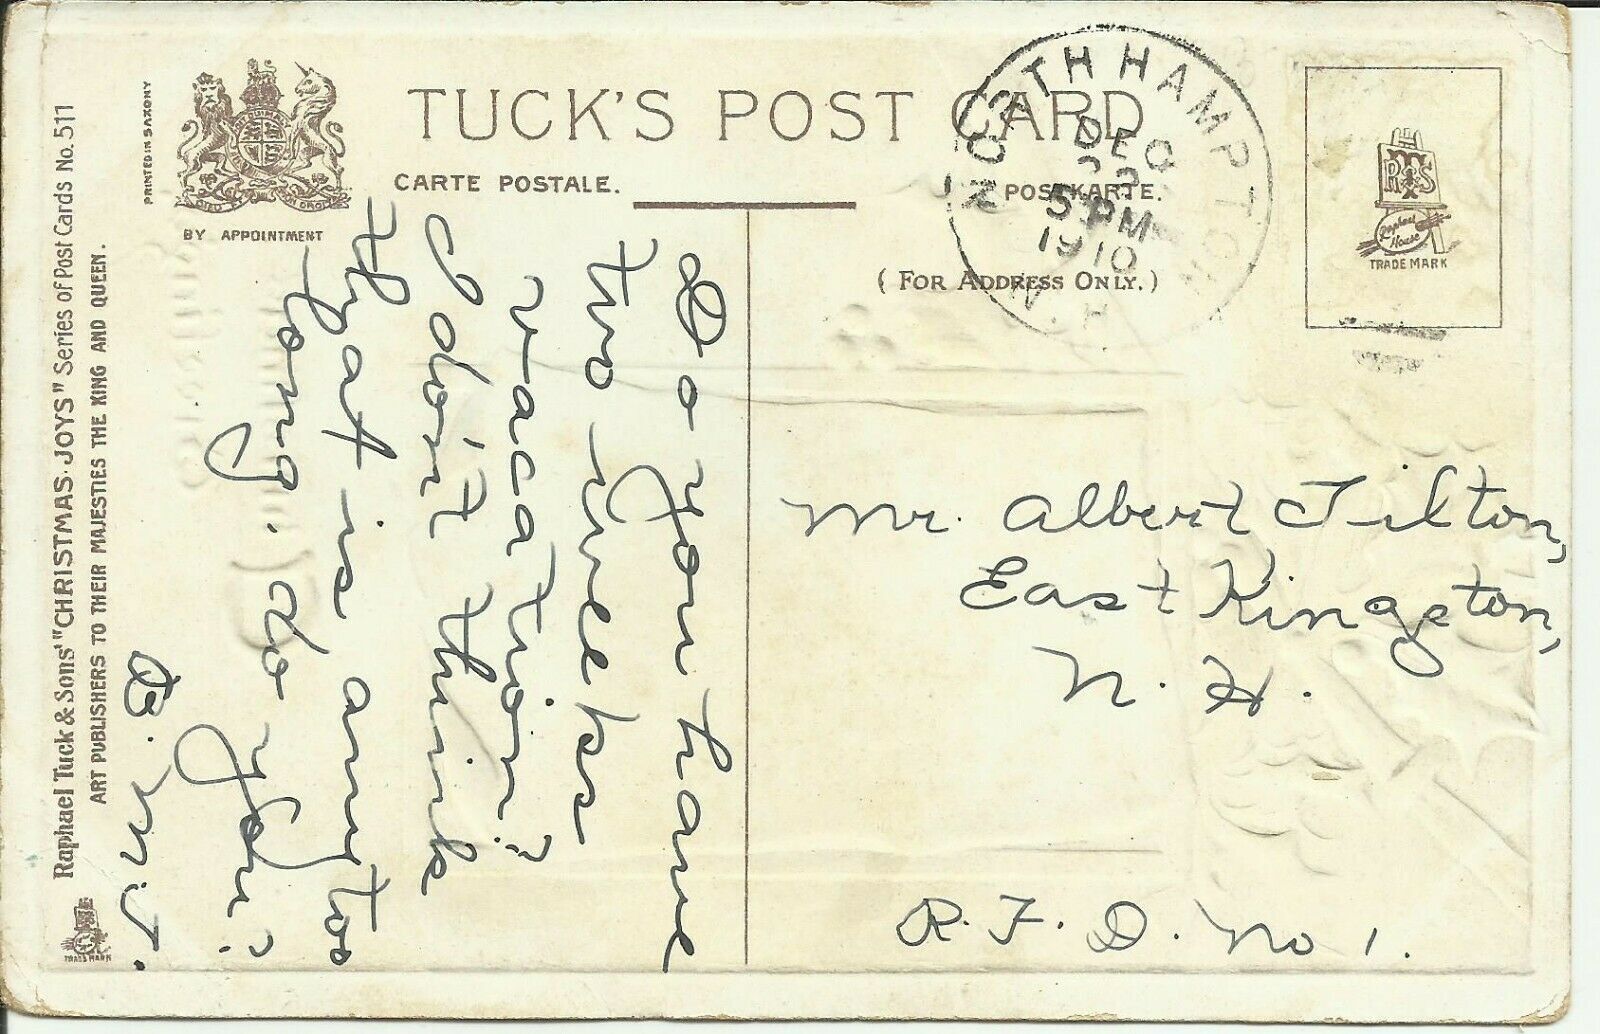 Raphael Tuck & Sons' "CHRISTMAS·JOYS" Series of Post Cards No. 511
ART PUBLISHERS TO THEIR MAJESTIES THE KING AND QUEEN.
PRINTED IN SAXONY
TRADE MARK
BY APPOINTMENT
TUCK'S POST CARD
CARTE POSTALE.
POSTKARTE.
( FOR ADDRESS ONLY. )
NORTH HAMPTON
DEC
5 PM
1910
N.H.
RTS
Raphael
House
TRADE MARK
Do you have
two weeks
vacation?
I don't think
that is any too
long. do you?
B. M. J.
Mr. Albert Tilton,
East Kingston,
N. H.
R. F. D. No 1.